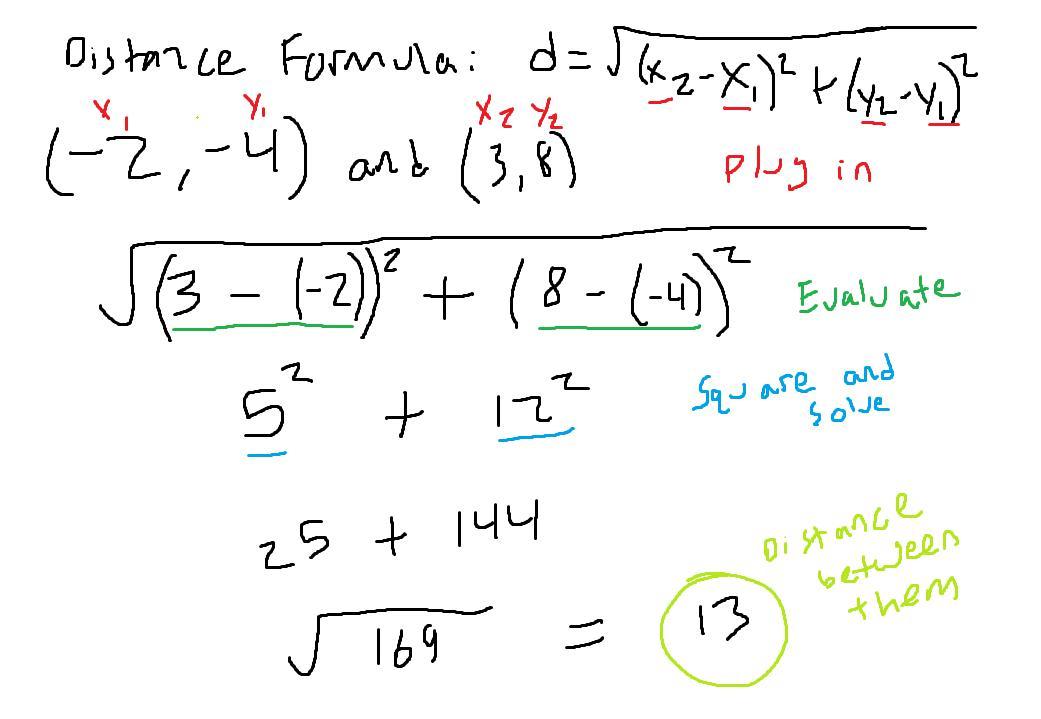 Distance Formula: d=√(x₂-x₁)²+(y₂-y₁)²
x₁ y₁ x₂ y₂
(-2,-4) and (3,8) Plug in
√(3-(-2))²+(8-(-4))² Evaluate
5² + 12² Square and
solve
25 + 144
√169 = 13
Distance
between
them